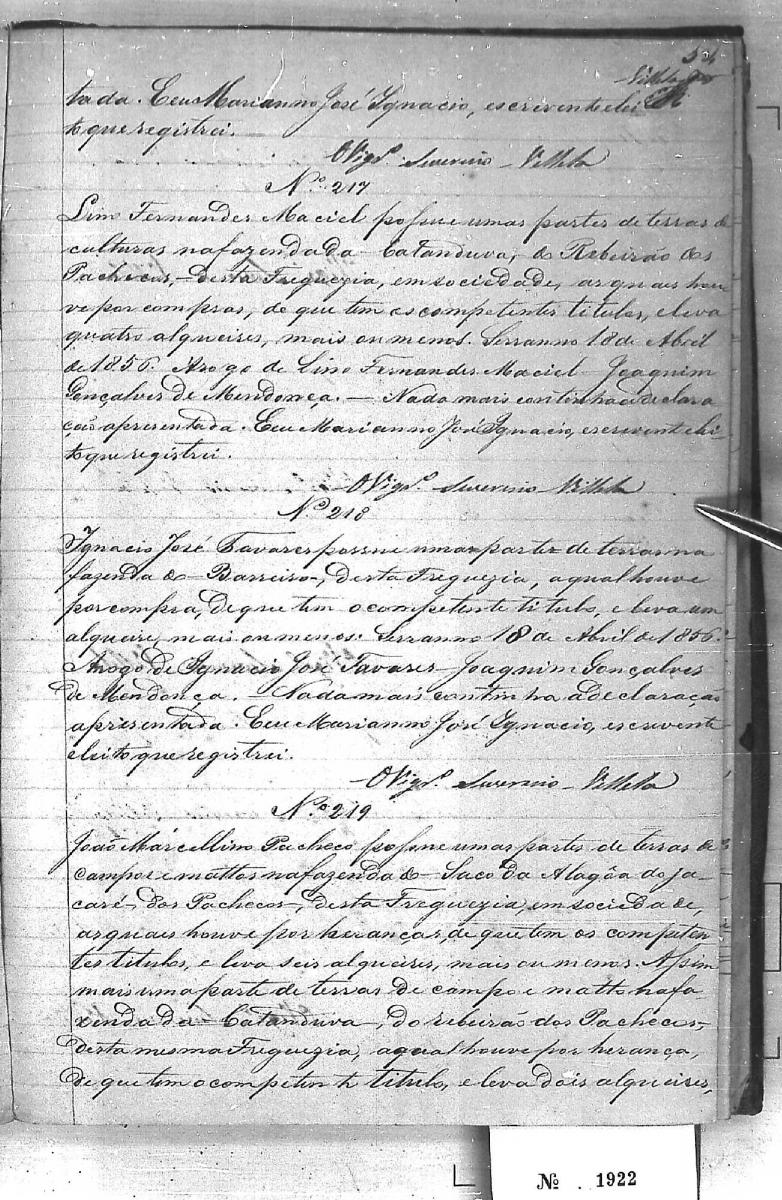 54
Villela
tada. E eu Marianno José Ignacio, escrivente elei
to que registrei.
O Vigr.º Severino Villela
N.º 217
Lino Fernandes Maciel possue umas partes de terras de
culturas na fazenda da Catanduva, do Ribeirão dos
Pachecos, desta Freguezia, em sociedade, as quaes hou
ve por compras, de que tem os competentes titulos, e leva
quatro alqueires, mais ou menos. Serranno 18 de Abril
de 1856. Arogo de Lino Fernandes Maciel Joaquim
Gonçalves de Mendonça. — Nada mais continha a declara
ção apresentada. E eu Marianno José Ignacio, escrivente elei
to que registrei.
O Vigr.º Severino Villela
N.º 218
Ignacio José Tavares possue uma parte de terras na
fazenda do Barreiro, desta Freguezia, a qual houve
por compra, de que tem o competente titulo, e leva um
alqueire, mais ou menos. Serranno 18 de Abril de 1856.
Arogo de Ignacio José Tavares Joaquim Gonçalves
de Mendonça. — Nada mais continha a declaração
apresentada. E eu Marianno José Ignacio, escrivente
eleito que registrei.
O Vigr.º Severino Villela
N.º 219
João Marcellino Pacheco possue umas partes de terras de
campos e mattos na fazenda do Saco da Alagôa do Ja-
caré dos Pachecos, desta Freguezia, em sociedade,
as quaes houve por heranças, de que tem os competen
tes titulos, e leva seis alqueires, mais ou menos. Assim
mais uma parte de terras de campo e matto na fa
zenda da Catanduva, do ribeirão dos Pachecos,
desta mesma Freguezia, a qual houve por herança,
de que tem o competente titulo, e leva dois alqueires,
Nº 1922